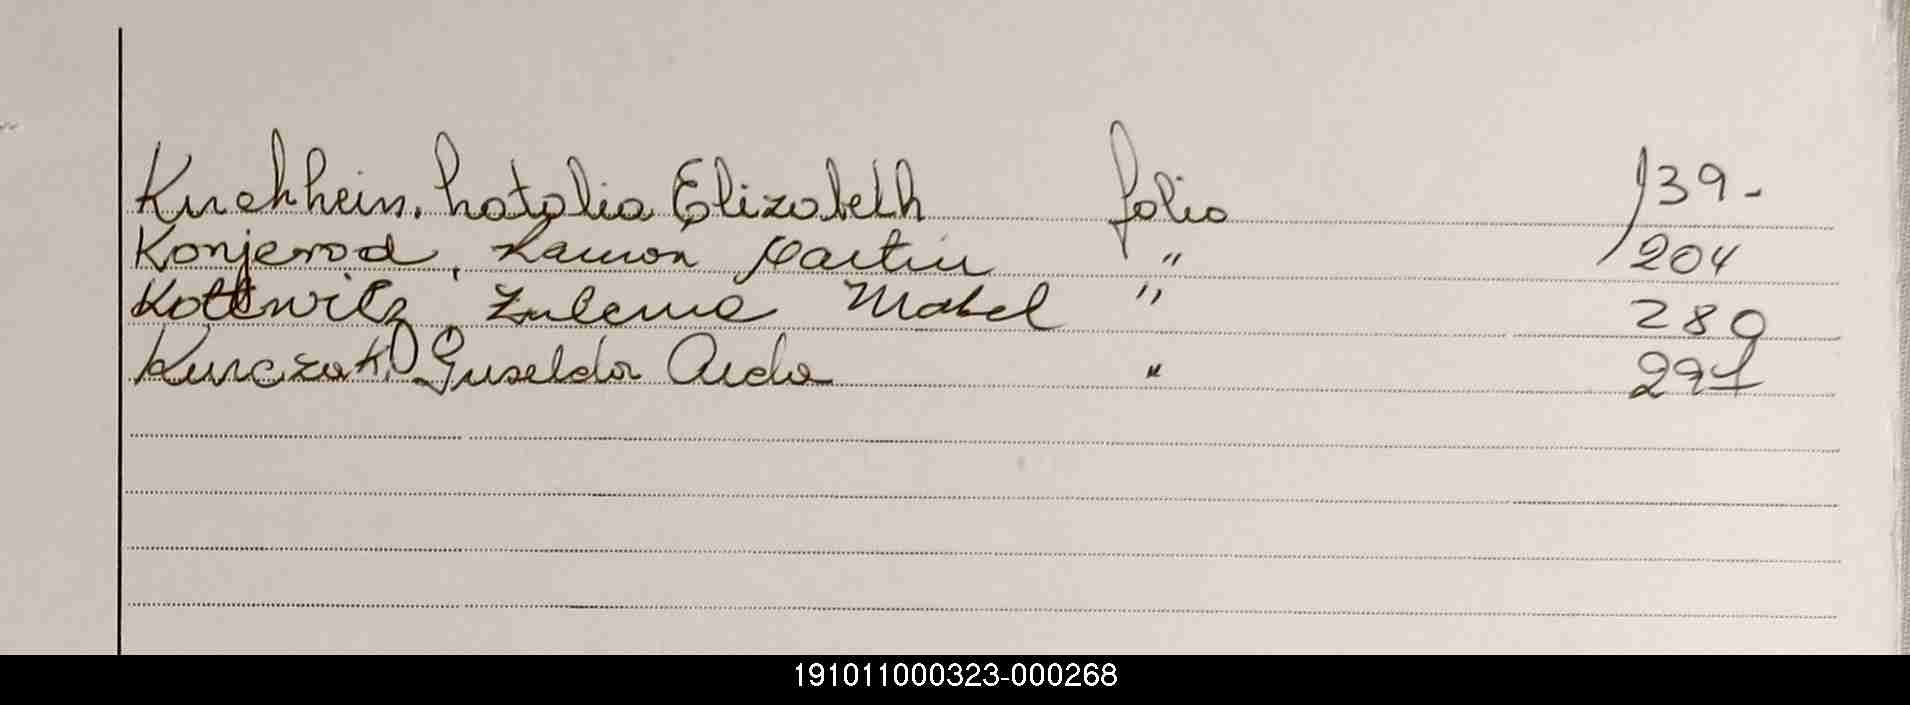 Kuchhein, Natalia Elizabeth folio 139-
Konjerod, Ramon Martin " 204
Kottwitz, Zulema Mabel " 280
Kurczak, Griselda Aida " 297
191011000323-000268